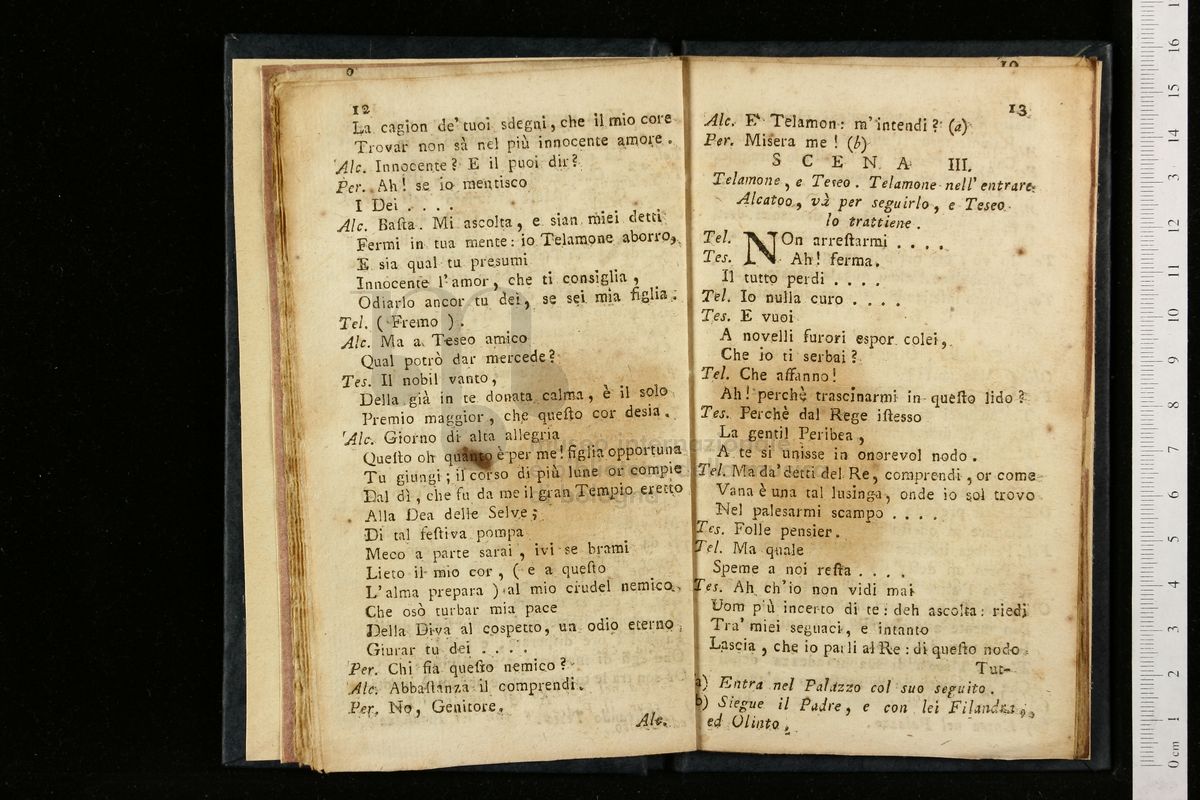 12
La cagion de' tuoi sdegni, che il mio core
Trovar non sà nel più innocente amore.
Alc. Innocente? E il puoi dir?
Per. Ah! se io mentisco
I Dei . . . .
Alc. Baſta. Mi ascolta, e sian miei detti
Fermi in tua mente: io Telamone aborro,
E sia qual tu presumi
Innocente l'amor, che ti consiglia,
Odiarlo ancor tu dei, se sei mia figlia.
Tel. (Fremo).
Alc. Ma a Teseo amico
Qual potrò dar mercede?
Tes. Il nobil vanto,
Della già in te donata calma, è il solo
Premio maggior, che queſto cor desia.
Alc. Giorno di alta allegria
Queſto oh quanto è per me! figlia opportuna
Tu giungi; il corso di più lune or compie
Dal dì, che fu da me il gran Tempio eretto
Alla Dea delle Selve;
Di tal feſtiva pompa
Meco a parte sarai, ivi se brami
Lieto il mio cor, (e a queſto
L'alma prepara) al mio crudel nemico
Che osò turbar mia pace
Della Diva al cospetto, un odio eterno
Giurar tu dei . . . .
Per. Chi fia queſto nemico?
Alc. Abbaſtanza il comprendi.
Per. No, Genitore.
Alc.
13
Alc. E' Telamon: m'intendi? (a)
Per. Misera me! (b)
SCENA III.
Telamone, e Teseo. Telamone nell' entrare
Alcatoo, và per seguirlo, e Teseo
lo trattiene.
Tel. NOn arreſtarmi . . . .
Tes. Ah! ferma.
Il tutto perdi . . . .
Tel. Io nulla curo . . . .
Tes. E vuoi
A novelli furori espor colei,
Che io ti serbai?
Tel. Che affanno!
Ah! perchè trascinarmi in queſto lido?
Tes. Perchè dal Rege iſtesso
La gentil Peribea,
A te si unisse in onorevol nodo.
Tel. Ma da' detti del Re, comprendi, or come
Vana è una tal lusinga, onde io sol trovo
Nel palesarmi scampo . . . .
Tes. Folle pensier.
Tel. Ma quale
Speme a noi reſta . . . .
Tes. Ah ch'io non vidi mai
Uom più incerto di te: deh ascolta: riedi
Tra' miei seguaci, e intanto
Lascia, che io parli al Re: di queſto nodo
Tut-
a) Entra nel Palazzo col suo seguito.
b) Siegue il Padre, e con lei Filandra,
ed Olinto.
museo internazionale
bologna
0 cm 1 2 3 4 5 6 7 8 9 10 11 12 13 14 15 16